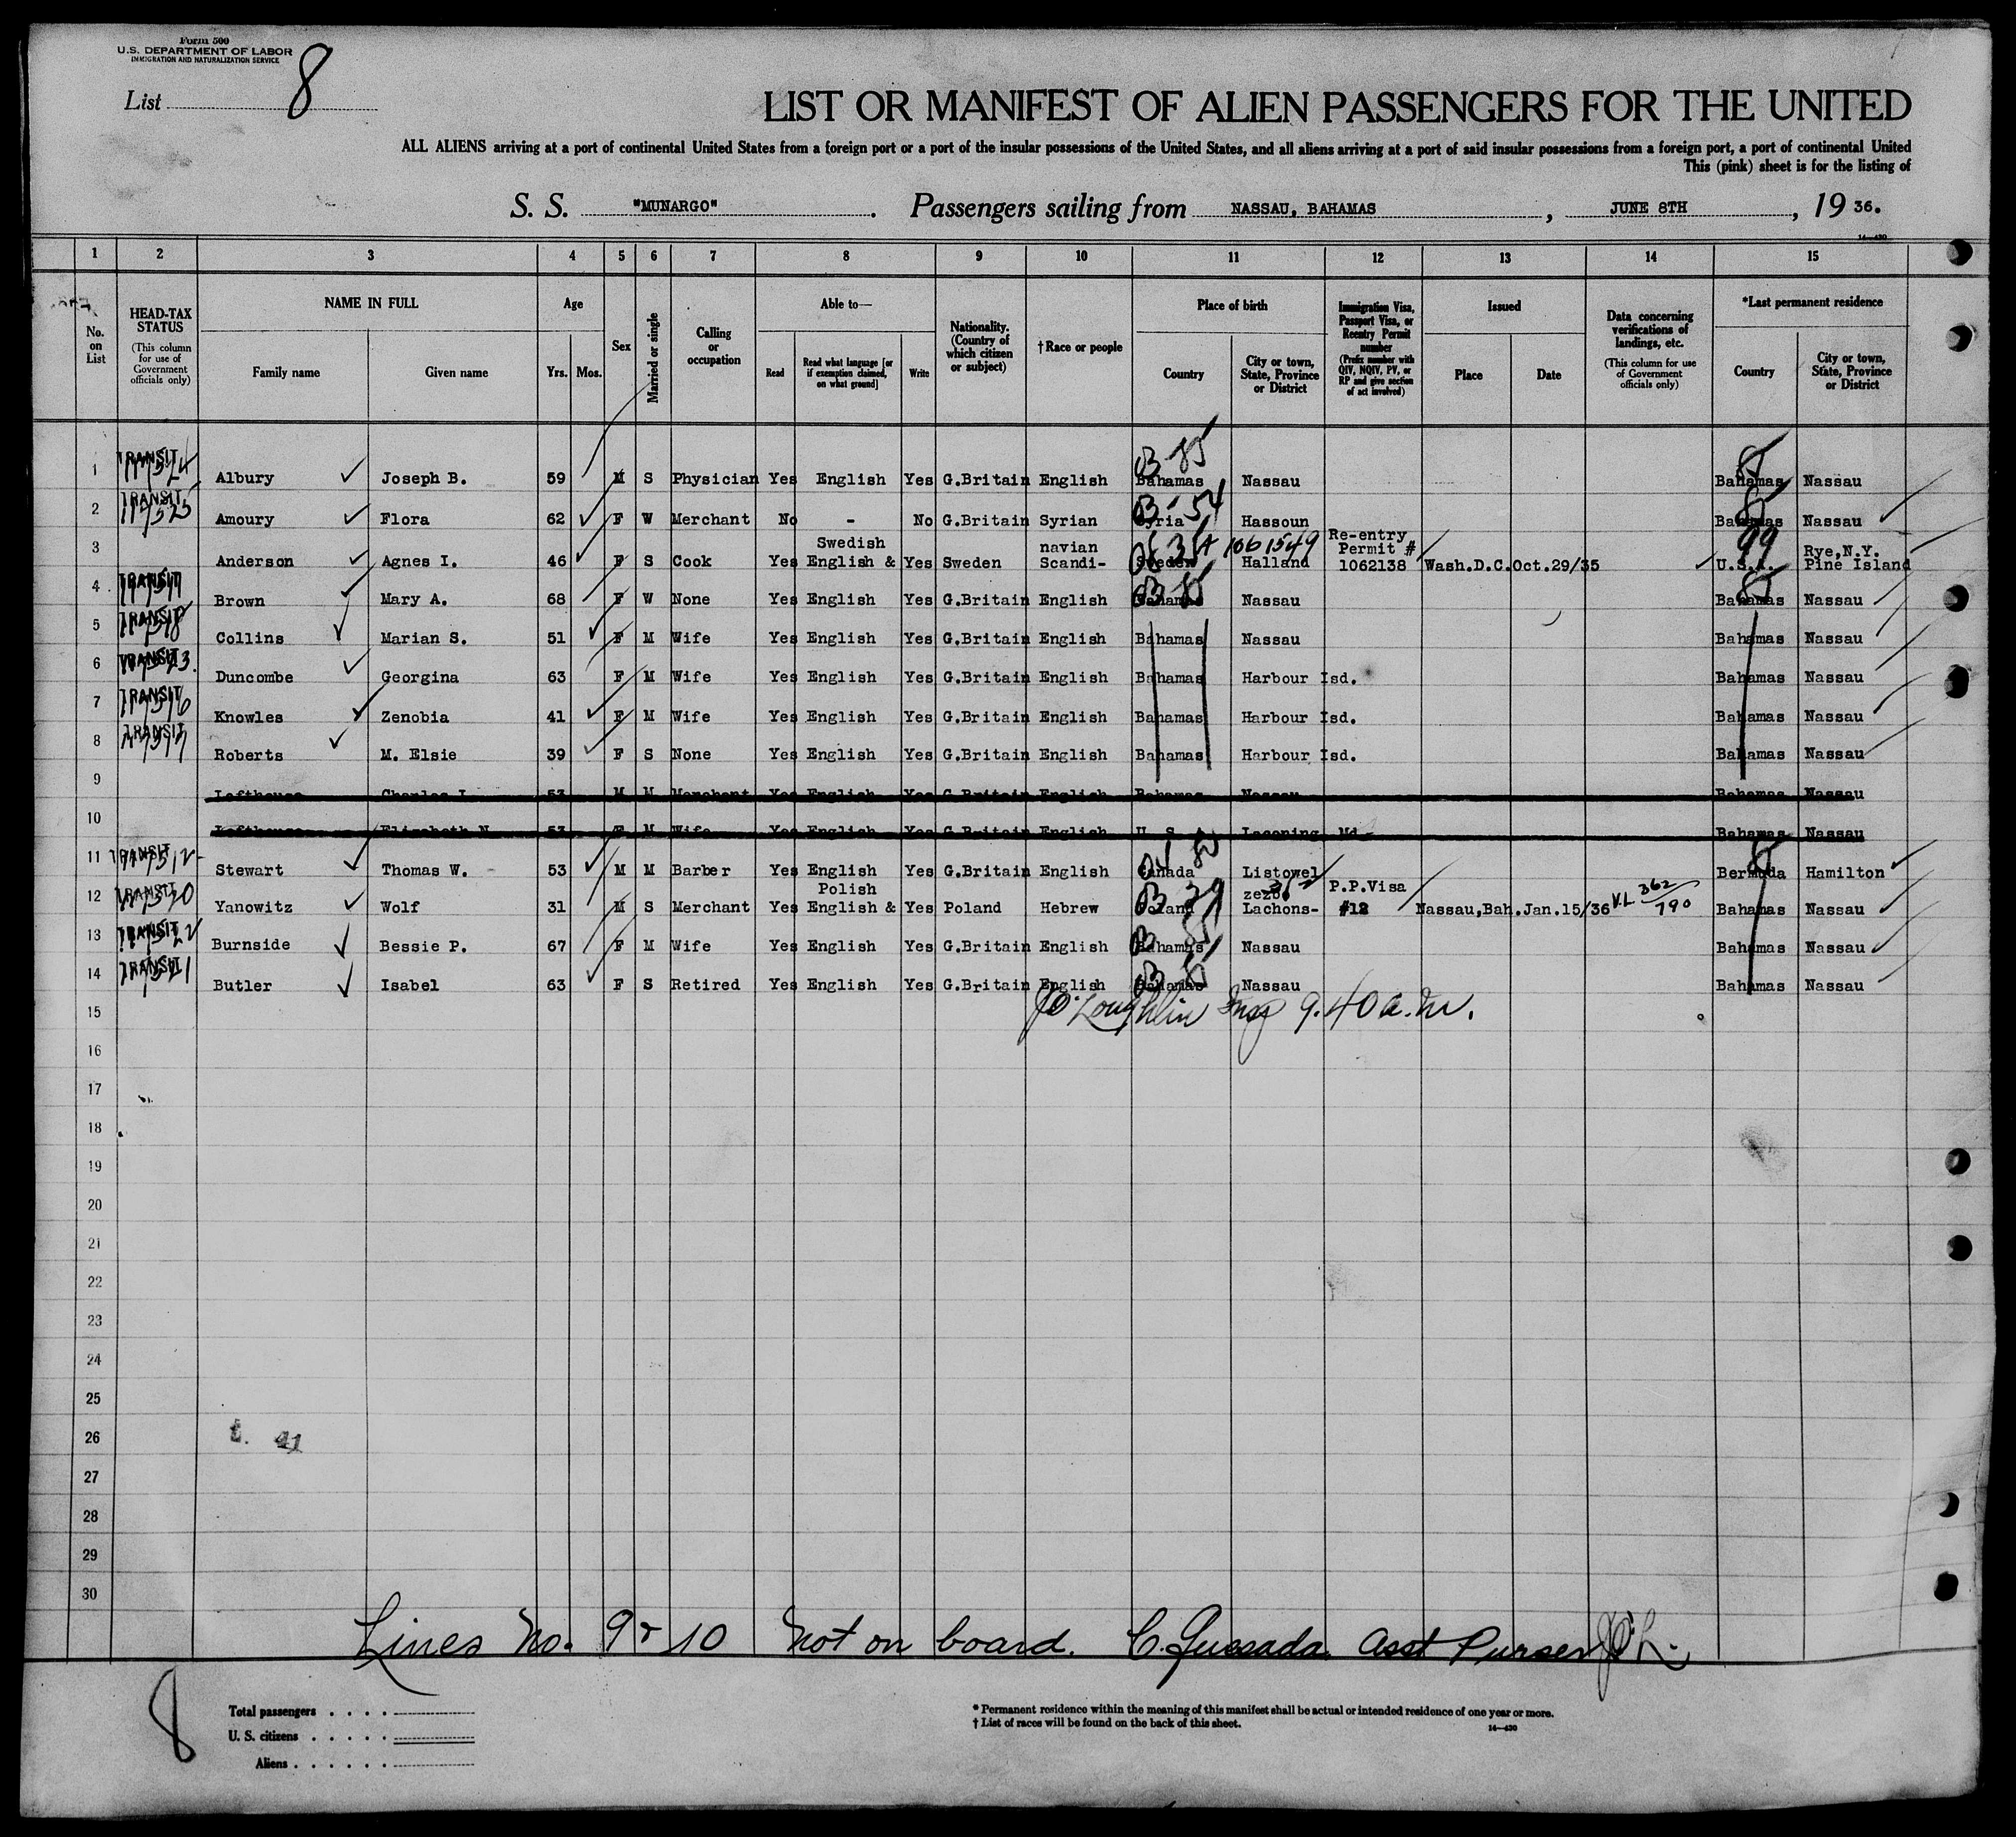 Form 500
U.S. DEPARTMENT OF LABOR
IMMIGRATION AND NATURALIZATION SERVICE
List 8
LIST OR MANIFEST OF ALIEN PASSENGERS FOR THE UNITED
ALL ALIENS arriving at a port of continental United States from a foreign port or a port of the insular possessions of the United States, and all aliens arriving at a port of said insular possessions from a foreign port, a port of continental United
This (pink) sheet is for the listing of
S. S. "MUNARGO". Passengers sailing from NASSAU, BAHAMAS, JUNE 8TH, 19 36.
14—430
1 2 3 4 5 6 7 8 9 10 11 12 13 14 15
No. on List
HEAD-TAX STATUS (This column for use of Government officials only)
NAME IN FULL Family name Given name
Age Yrs. Mos.
Sex
Married or single
Calling or occupation
Able to— Read Read what language [or if exemption claimed, on what ground] Write
Nationality. (Country of which citizen or subject)
†Race or people
Place of birth Country City or town, State, Province or District
Immigration Visa, Passport Visa, or Reentry Permit number (Prefix number with QIV, NQIV, PV, or RP and give section of act involved)
Issued Place Date
Data concerning verifications of landings, etc. (This column for use of Government officials only)
*Last permanent residence Country City or town, State, Province or District
1 TRANSIT Albury Joseph B. 59 M S Physician Yes English Yes G.Britain English Bahamas Nassau Bahamas Nassau
2 TRANSIT Amoury Flora 62 F W Merchant No - No G.Britain Syrian Syria Hassoun Bahamas Nassau
3 Anderson Agnes I. 46 F S Cook Yes Swedish English & Yes Sweden navian Scandi- Sweden Halland Re-entry Permit # 1062138 Wash.D.C. Oct.29/35 U.S.A. Rye,N.Y. Pine Island
4 TRANSIT Brown Mary A. 68 F W None Yes English Yes G.Britain English Bahamas Nassau Bahamas Nassau
5 TRANSIT Collins Marian S. 51 F M Wife Yes English Yes G.Britain English Bahamas Nassau Bahamas Nassau
6 TRANSIT Duncombe Georgina 63 F M Wife Yes English Yes G.Britain English Bahamas Harbour Isd. Bahamas Nassau
7 TRANSIT Knowles Zenobia 41 F M Wife Yes English Yes G.Britain English Bahamas Harbour Isd. Bahamas Nassau
8 TRANSIT Roberts M. Elsie 39 F S None Yes English Yes G.Britain English Bahamas Harbour Isd. Bahamas Nassau
9 Lofthouse Charles 53 M M Merchant Yes English Yes G.Britain English Bahamas Nassau Bahamas Nassau
10 Lofthouse Elizabeth N. 53 F M Wife Yes English Yes G.Britain English U. S. Md. Bahamas Nassau
11 TRANSIT Stewart Thomas W. 53 M M Barber Yes English Yes G.Britain English Canada Listowel Bermuda Hamilton
12 TRANSIT Yanowitz Wolf 31 M S Merchant Yes Polish English & Yes Poland Hebrew Poland Lachons- P.P.Visa #12 Nassau,Bah. Jan.15/36 V.L 362/790 Bahamas Nassau
13 TRANSIT Burnside Bessie P. 67 F M Wife Yes English Yes G.Britain English Bahamas Nassau Bahamas Nassau
14 TRANSIT Butler Isabel 63 F S Retired Yes English Yes G.Britain English Bahamas Nassau Bahamas Nassau
15 Insp 9.40 a.m.
16
17
18
19
20
21
22
23
24
25
26 41
27
28
29
30
Lines No. 9 & 10 not on board. Asst Purser
8
Total passengers
U. S. citizens
Aliens
* Permanent residence within the meaning of this manifest shall be actual or intended residence of one year or more.
† List of races will be found on the back of this sheet.
14—430